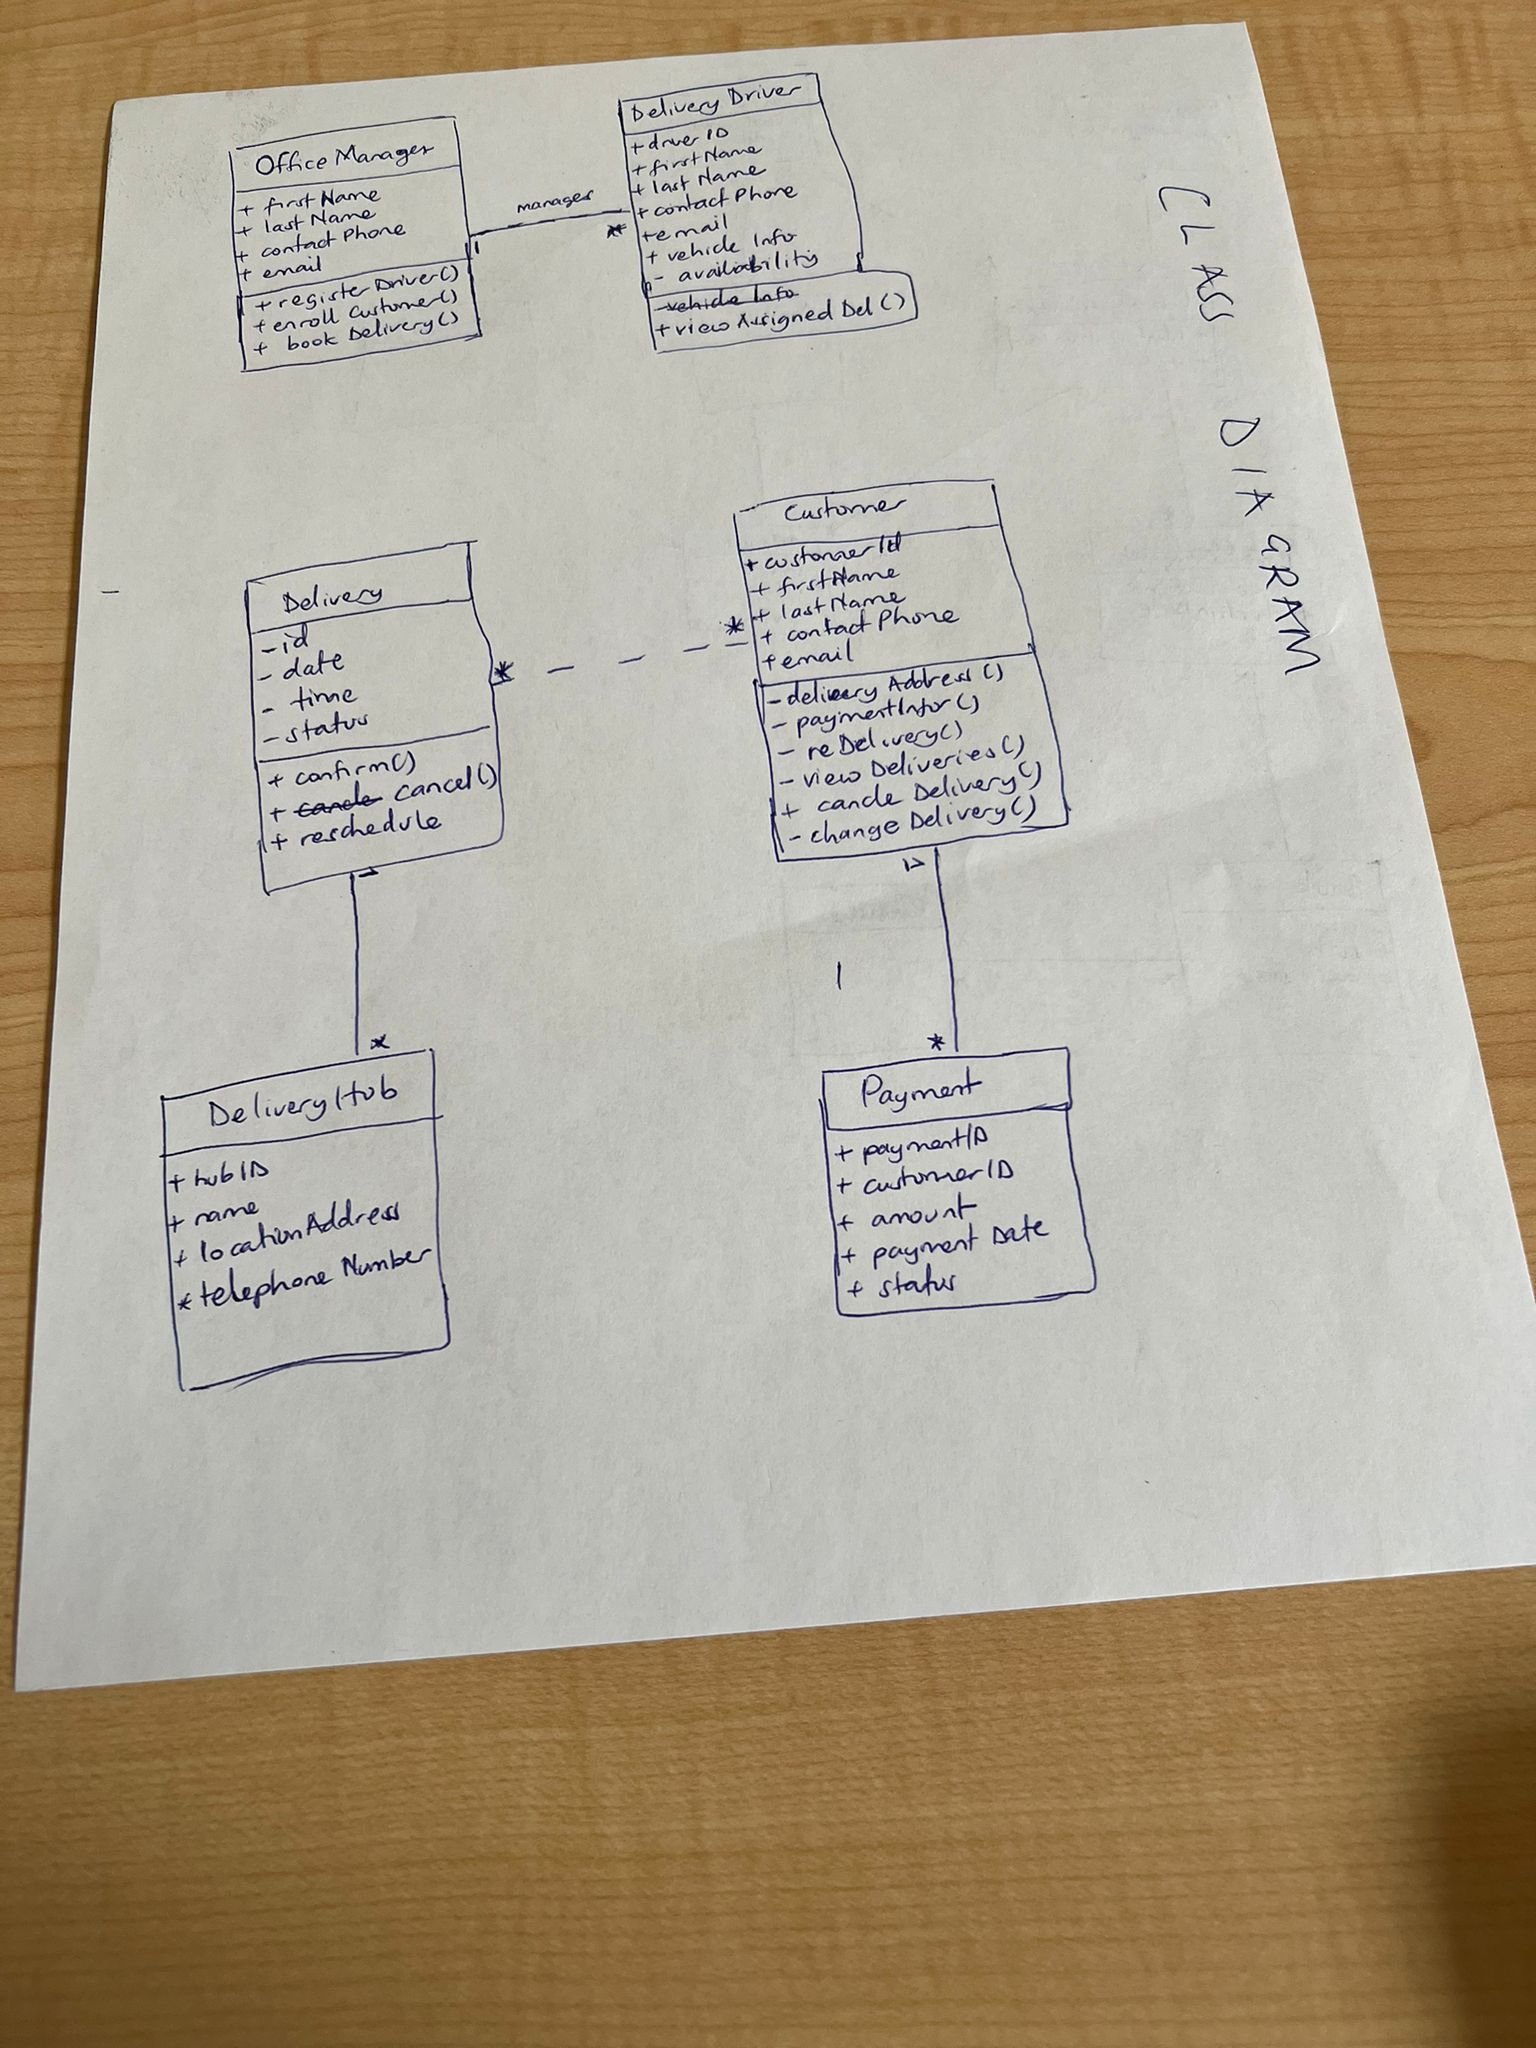 CLASS DIAGRAM
Office Manager
+ first Name
+ last Name
+ contact Phone
+ email
+ register Driver()
+ enroll Customer()
+ book Delivery()
1
manages
*
Delivery Driver
+ driver ID
+ first Name
+ last Name
+ contact Phone
+ email
+ vehicle Info
- availability
- vehicle Info
+ view Assigned Del ()
Delivery
- id
- date
- time
- status
+ confirm()
+ cancle Cancel()
+ reschedule
*
*
Customer
+ customer Id
+ first Name
+ last Name
+ contact Phone
+ email
- delivery Address ()
- paymentInfor ()
- reDelivery()
- view Deliveries()
+ cancle Delivery()
- change Delivery()
1
*
Delivery Hub
+ hub ID
+ name
+ location Address
* telephone Number
*
Payment
+ payment ID
+ customer ID
+ amount
+ payment Date
+ status